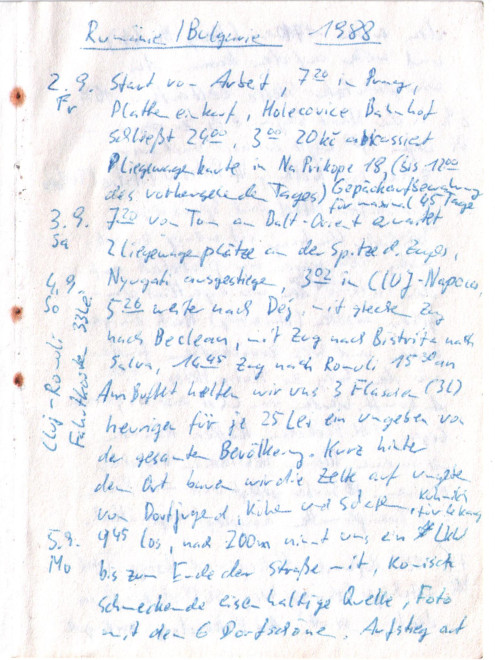 Rumänien/Bulgarien 1988
2.9. Start von Arbeit, 7²⁰ in Prag,
Fr Platten einkauf, Holecovice, Bahnhof
schließt 24⁰⁰, 3⁰⁰ 20 kč abkassiert
Pliegewagenkarte in Na Prikope 18, (bis 12⁰⁰
des vorhergehenden Tages) Gepäckaufbewahrung
für maximal 45 Tage
3.9. 7²⁰ von Tom am Balt-Orient erwartet
Sa 2 Liegewagenplätze an der Spitze d. Zuges,
4.9. Nyugati ausgestiegen, 3⁰² in Cluj-Napoca,
So 5²⁶ weiter nach Dej, mit gleichen Zug
nach Beclean, mit Zug nach Bistrita nach
Salva, 14⁴⁵ Zug nach Romuli 15³⁰ an
Cluj-Romuli
Fahrtkosten 33 Lei
Am Buffet helfen wir uns 3 Flaschen (3L)
heurigen für je 25 Lei ein umgeben von
der gesamten Bevölkerung. Kurz hinter
dem Ort bauen wir die Zelte auf umgeben
von Dorfjugend, Kühen und Schafen,
5.9. 9⁴⁵ los, nach 200m nimmt uns ein LKW
Mo bis zum Ende der Straße mit, Komisch
schmeckende eisenhaltige Quelle, Foto
mit den 6 Dorfschönen, Aufstieg auf